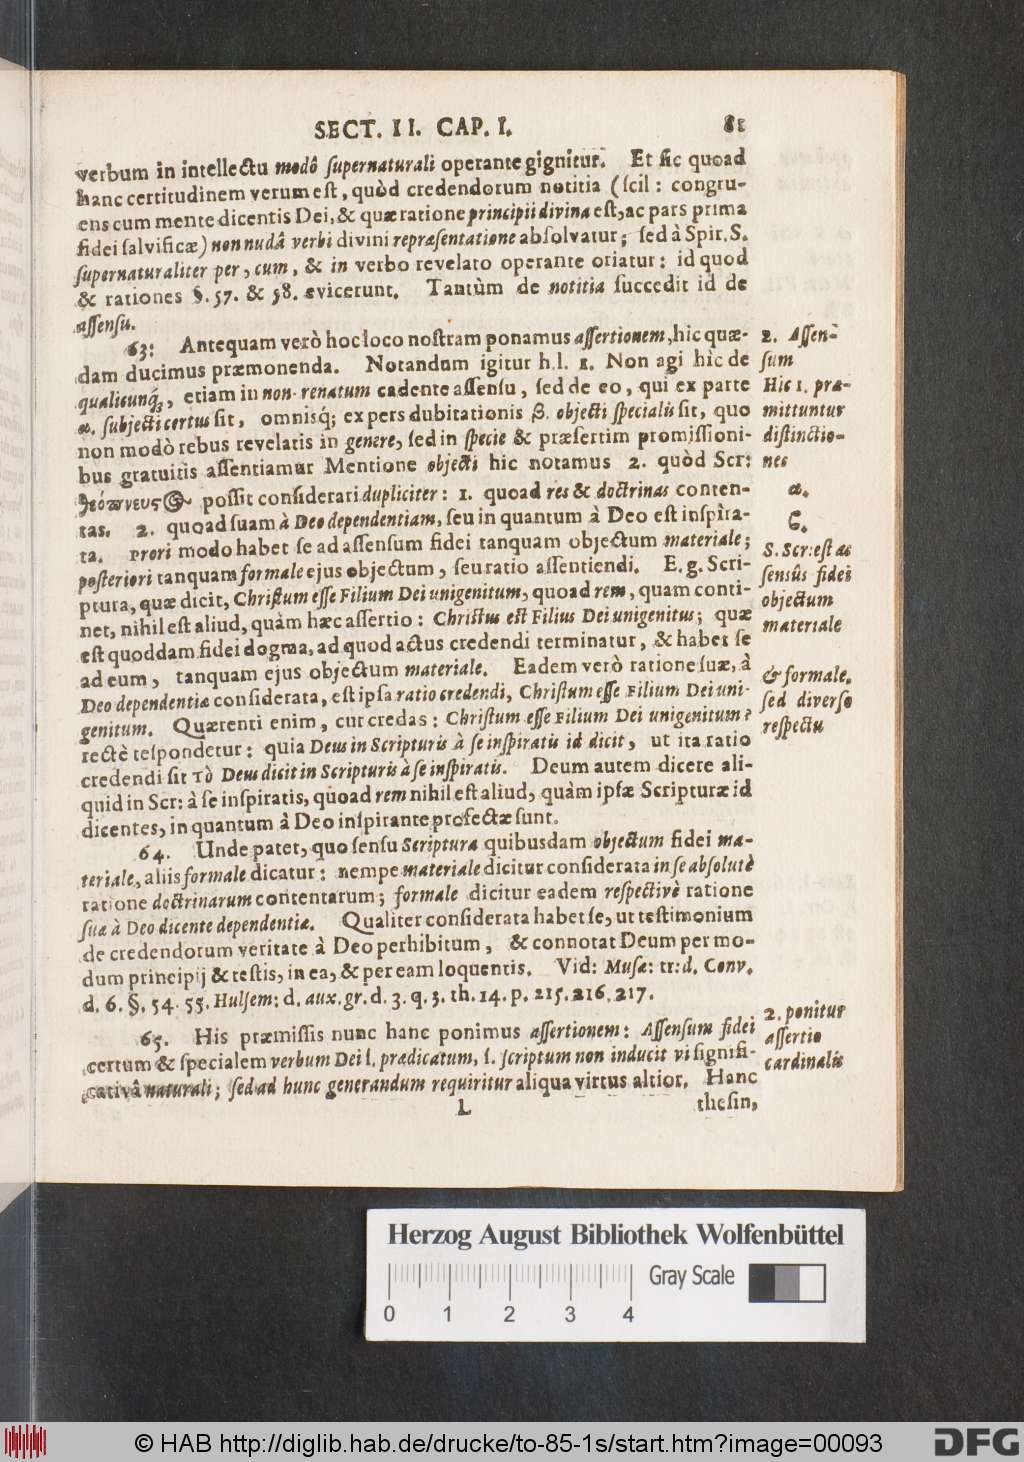 SECT. II. CAP. I. 81
verbum in intellectu modô supernaturali operante gignitur. Et sic quoad
hanc certitudinem verum est, quòd credendorum notitia (scil: congru-
ens cum mente dicentis Dei, & quæ ratione principii divina est, ac pars prima
fidei salvificæ) non nudâ verbi divini repræsentatione absolvatur; sed à Spir. S.
supernaturaliter per, cum, & in verbo revelato operante oriatur: id quod
& rationes §. 57. & 58. evicerunt. Tantùm de notitia succedit id de
assensu.
63: Antequam verò hoc loco nostram ponamus assertionem, hic quæ-
dam ducimus præmonenda. Notandum igitur h.l. 1. Non agi hìc de
qualicunq́;, etiam in non-renatum cadente assensu, sed de eo, qui ex parte
α. subjecti certus sit, omnisq́; expers dubitationis β. objecti specialis sit, quo
non modò rebus revelatis in genere, sed in specie & præsertim promissioni-
bus gratuitis assentiamur Mentione objecti hic notamus 2. quòd Scr:
θεόπνευςος possit considerari dupliciter: 1. quoad res & doctrinas conten-
tas. 2. quoad suam à Deo dependentiam, seu in quantum à Deo est inspira-
ta. Priori modo habet se ad assensum fidei tanquam objectum materiale;
posteriori tanquam formale ejus objectum, seu ratio assentiendi. E.g. Scri-
ptura, quæ dicit, Christum esse Filium Dei unigenitum, quoad rem, quam conti-
net, nihil est aliud, quàm hæc assertio: Christus est Filius Dei unigenitus; quæ
est quoddam fidei dogma, ad quod actus credendi terminatur, & habet se
ad eum, tanquam ejus objectum materiale. Eadem verò ratione suæ, à
Deo dependentiæ considerata, est ipsa ratio credendi, Christum esse Filium Dei uni-
genitum. Quærenti enim, cur credas: Christum esse Filium Dei unigenitum?
rectè respondetur: quia Deus in Scripturis à se inspiratis id dicit, ut ita ratio
credendi sit τὸ Deus dicit in Scripturis à se inspiratis. Deum autem dicere ali-
quid in Scr: à se inspiratis, quoad rem nihil est aliud, quàm ipsæ Scripturæ id
dicentes, in quantum à Deo inspirante profectæ sunt.
64. Unde patet, quo sensu Scriptura quibusdam objectum fidei ma-
teriale, aliis formale dicatur: nempe materiale dicitur considerata in se absolutè
ratione doctrinarum contentarum; formale dicitur eadem respectivè ratione
suæ à Deo dicente dependentiæ. Qualiter considerata habet se, ut testimonium
de credendorum veritate à Deo perhibitum, & connotat Deum per mo-
dum principij & testis, in ea, & per eam loquentis. Vid: Musæ: tr: d. Conv.
d. 6. §. 54. 55. Hulsem: d. aux. gr. d. 3. q. 3. th. 14. p. 215. 216. 217.
65. His præmissis nunc hanc ponimus assertionem: Assensum fidei
certum & specialem verbum Dei s. prædicatum, s. scriptum non inducit vi signifi-
cativâ naturali; sed ad hunc generandum requiritur aliqua virtus altior. Hanc
L thesin,
2. Assen-
sum
Hic 1. præ-
mittuntur
distinctio-
nes
α.
ϐ.
S. Scr: est as
sensûs fidei
objectum
materiale
& formale.
sed diverso
respectu
2. ponitur
assertio
cardinalis
Herzog August Bibliothek Wolfenbüttel
Gray Scale
0 1 2 3 4
© HAB http://diglib.hab.de/drucke/to-85-1s/start.htm?image=00093
DFG